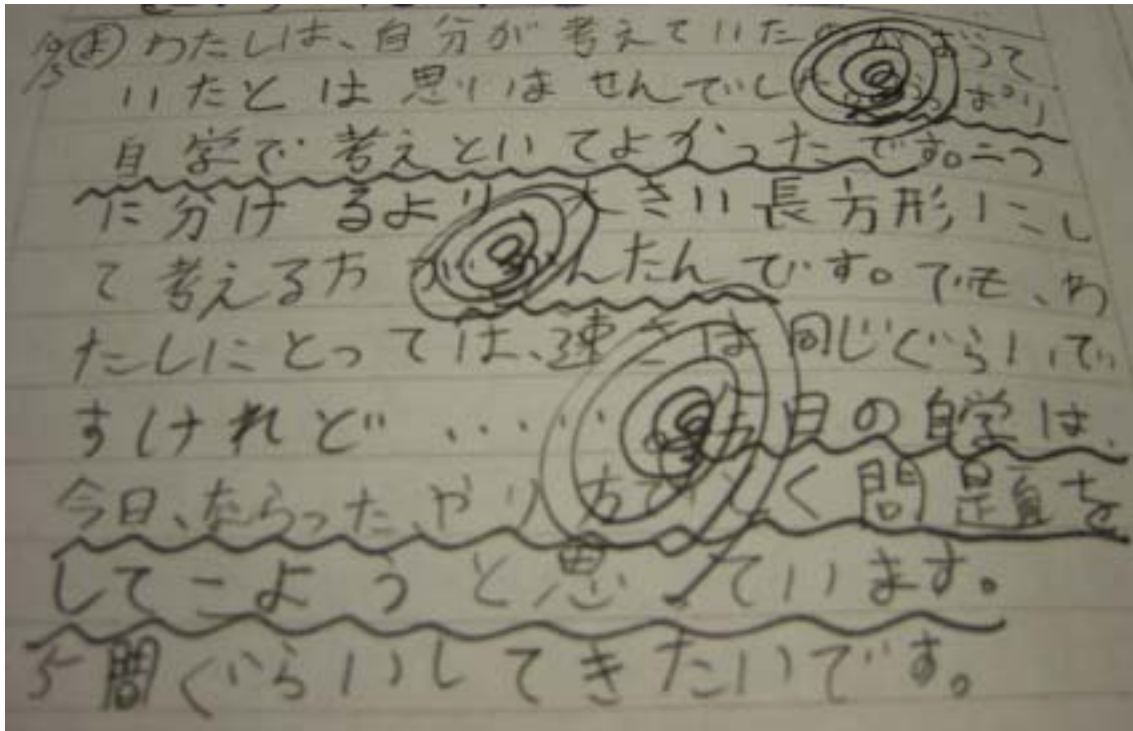 10/5 よ わたしは、自分が考えていたのがあって
いたとは思いはせんでした。やっぱり
自学で考えといてよかったです。二つ
に分けるより、大きい長方形にし
て考える方がかんたんです。でも、わ
たしにとっては、速さは同じぐらいで
すけれど……今日の自学は、
今日、ならった、やり方でとく問題を
してこようと思っています。
5問ぐらいしてきたいです。